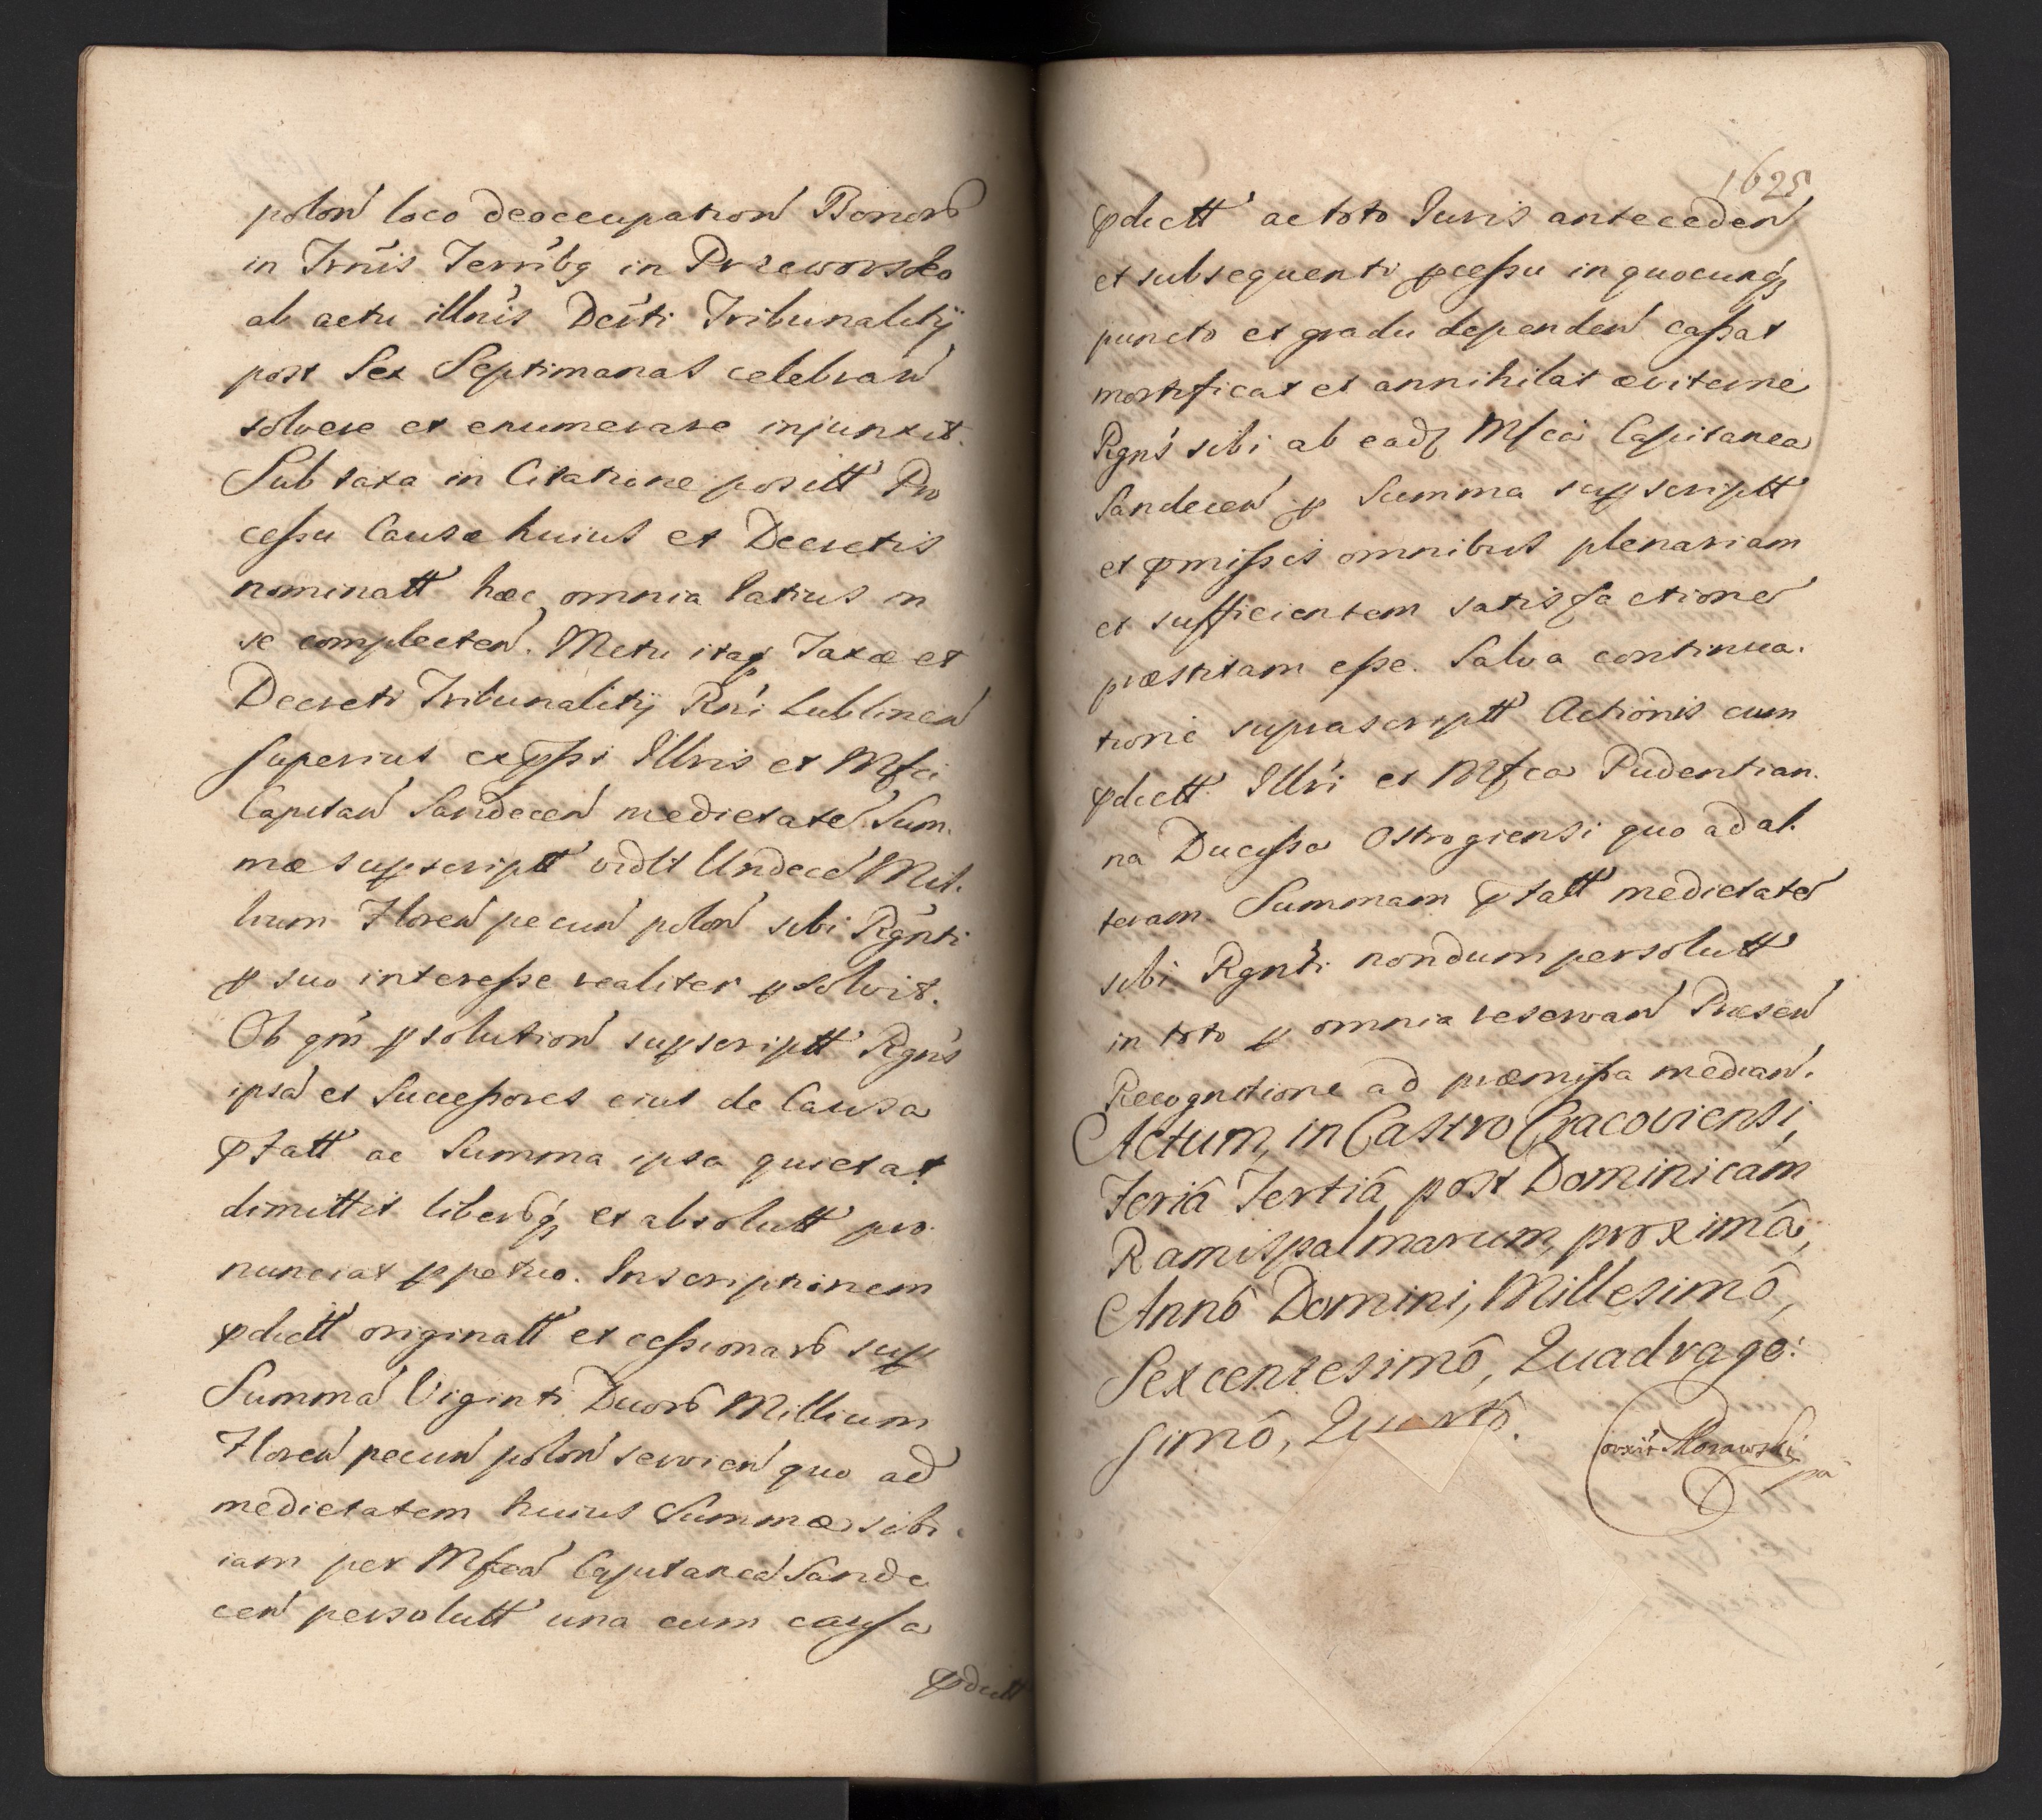 polon̄ loco deoccupation̄ Bonor̄
in Trn̄is Terr̄ibg in Przeworsko
ab actu illīus Dec̄ti Tribunalitij
post Sex Septimanas celebran̄
solvere et enumerare injunxit.
Sub taxa in Citatione positt Pro
cessu Causæ huius et Decretis
nominatt hæc omnia latius in
se complecten̄. Metu itaq Taxæ et
Decreti Tribunalitij Rn̄i Lublinen̄
superius exp̄ssi Illris et Mfci
Capitan̄ Sandecen̄ medietatē Sum-
mæ sup̱script vidlt Undecē Mil-
lium Floren̄ pecun̄ polon̄ sibi Rgn̄ti
p̱ suo interesse realiter p̱solvit.
Ob qm̄ p̱solution̄ sup̱scriptt Rgn̄s
ipsā et Successores eius de Causa
p̄fatt ac Summa ipsa quietat
dimittit liberosq et absolutt pro-
nunciat p̱petuo. Inscriptionem
p̄dictt originatt et cessionar̄ sup̱
Summā Viginti Duor̄ Millium
Floren̄ pecun̄ polon̄ servien̄ quo ad
medietatem huius Summæ sibi
iam per Mfcā Capitaneā Sande
cen̄ persolutt una cum causa
p̄dictt
1625
p̄dictt ac toto Iuris anteceden̄
et subsequenti p̱cessu in quocunq
puncto et gradu dependen̄ cassat
mortificat et annihilat æviterne
Rgn̄s sibi ab eadē Mfca Capitanea
Sandecen̄ p̱ Summa sup̱scriptt
et p̄missis omnibus plenariam
et sufficientem satisfactionē
præstitam esse. Salva continua-
tione suprascriptt Actionis cum
p̄dictt Illri et Mfca Pudentian-
na Ducissa Ostrogiensi quo ad al-
teram Summam p̄fatt medietatē
sibi Rgn̄ti nondum persolutt
in toto p̱ omnia reservan̄ Præsen̄
Recognitione ad præmissa median̄.
Actum, in Castro Cracoviensi,
Feriâ Tertiâ, post Dominicam
Ramispalmarum, proximâ,
Annô Domini, Millesimô,
Sexcentesimô, Quadrage:
simô, Quartô.
Morawski